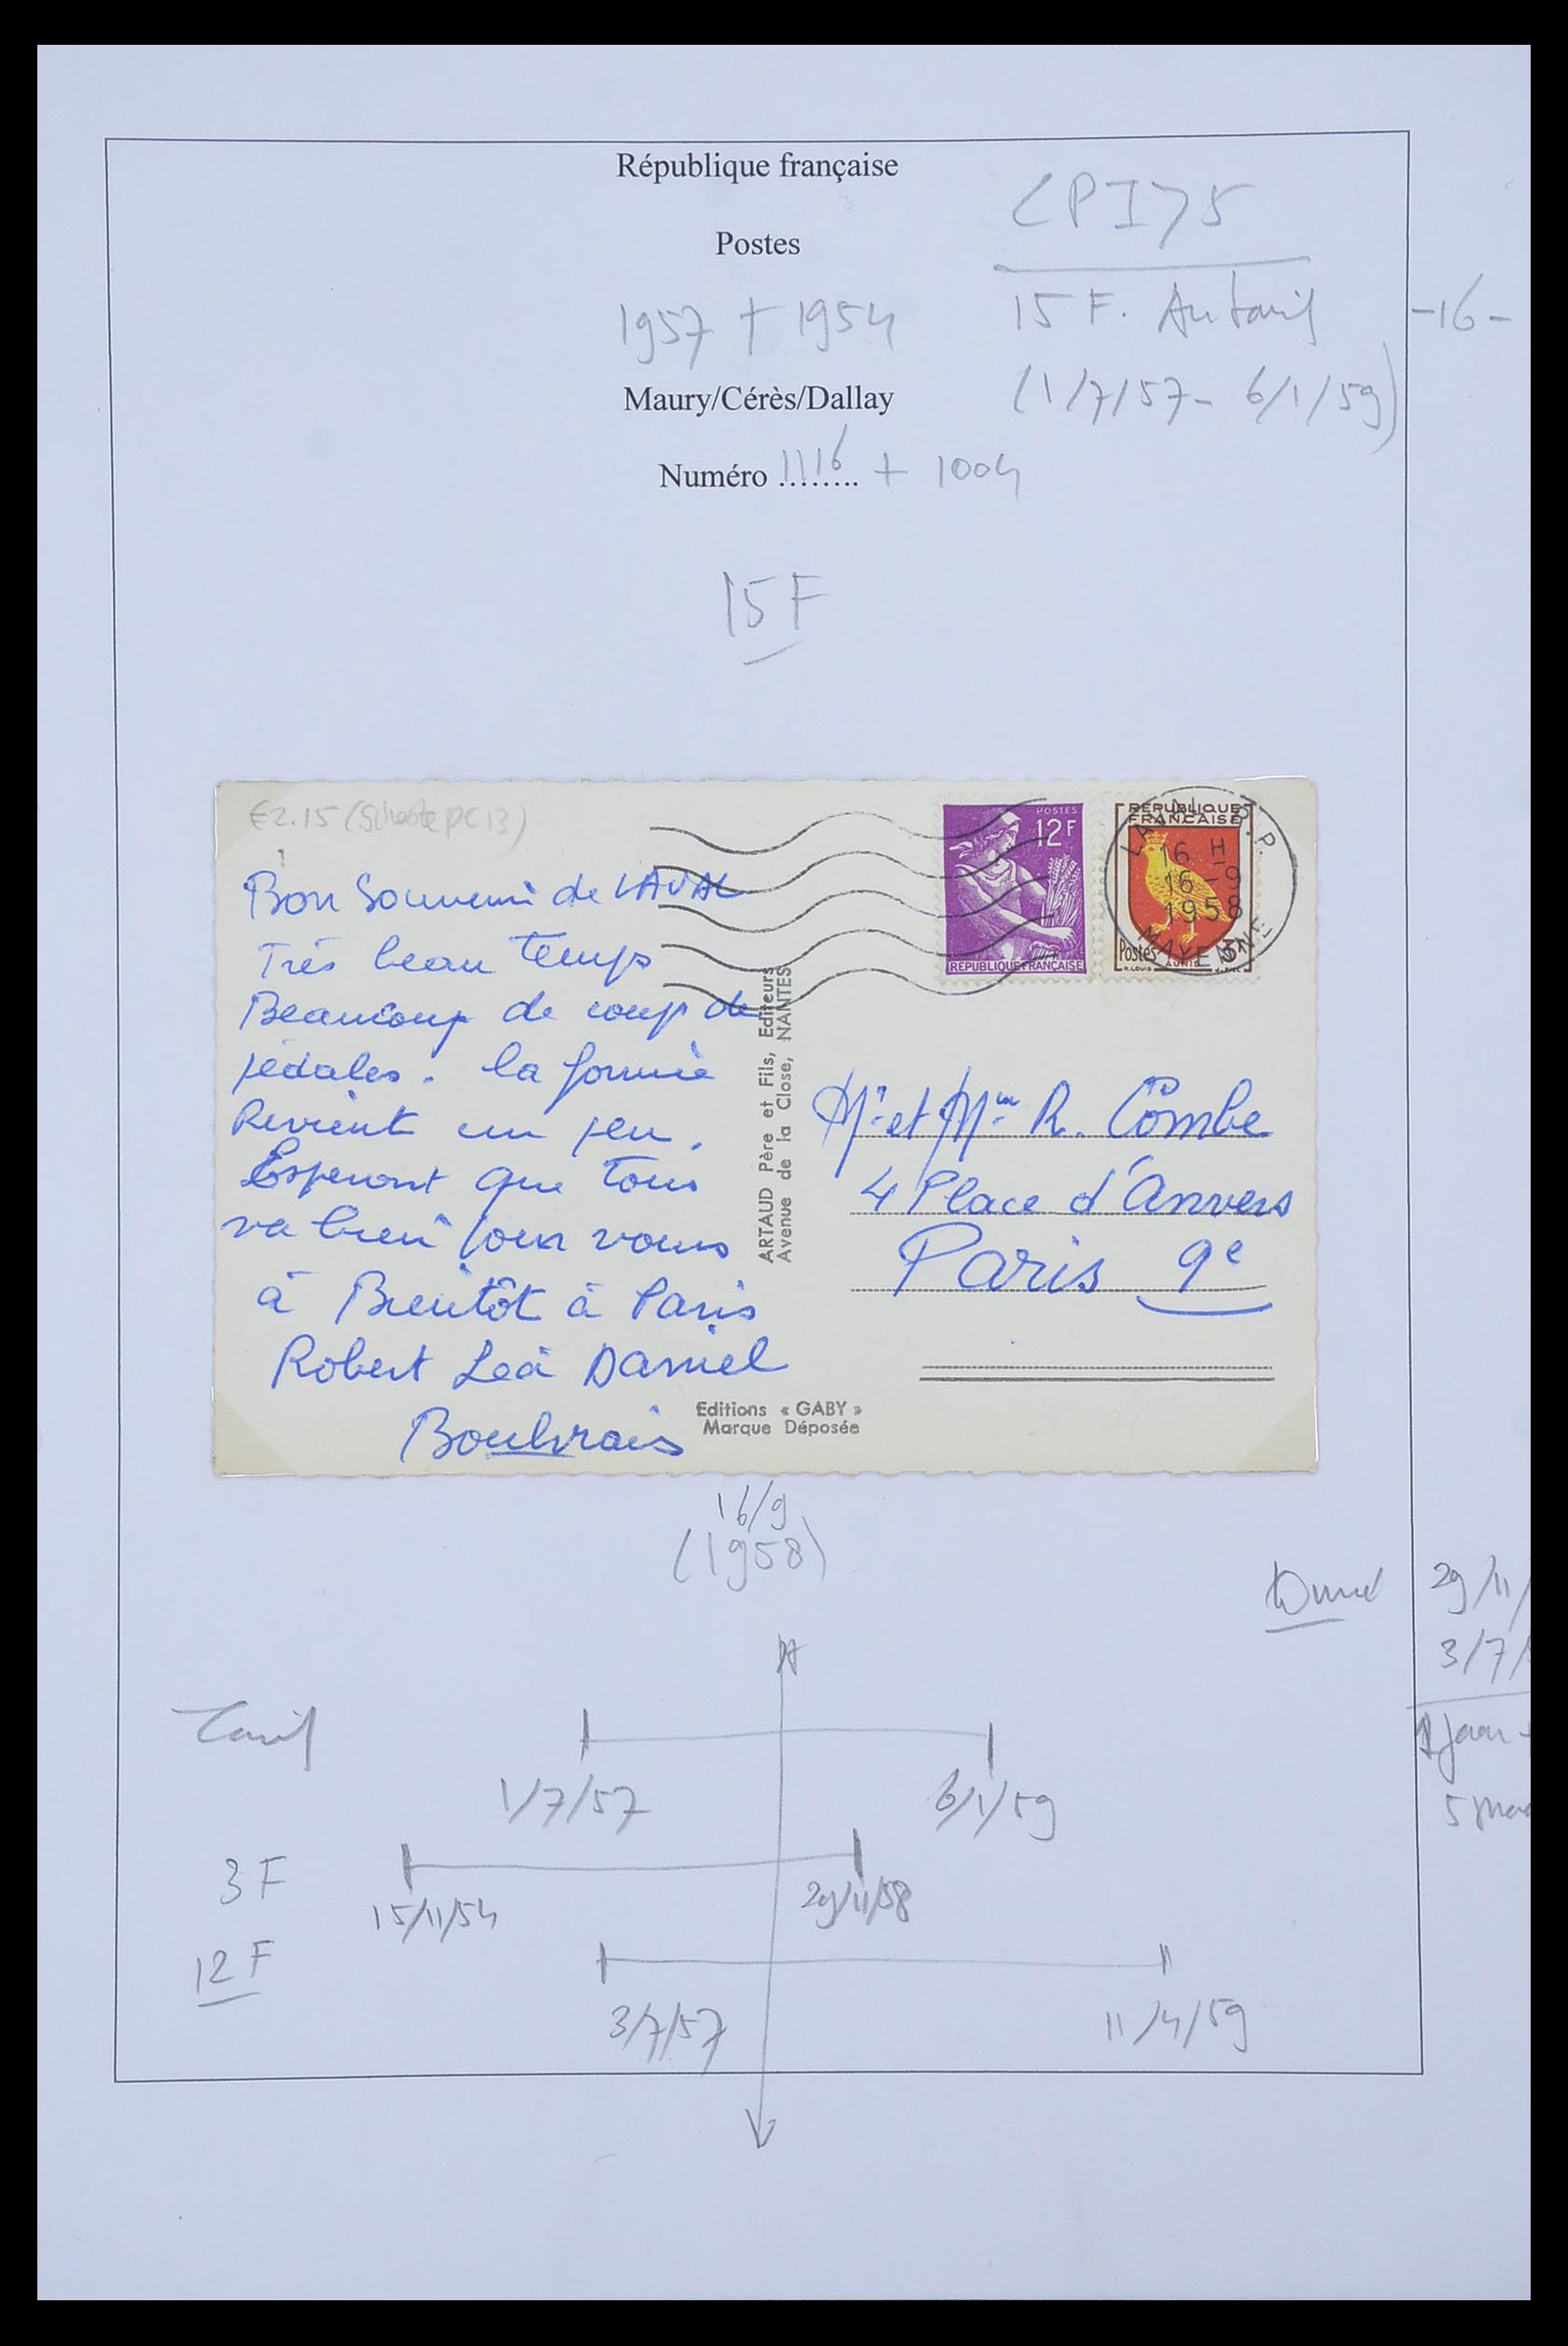 République française
Postes
1957 + 1954
Maury/Cérès/Dallay
Numéro ........ 1116 + 1004
<PI>5
15 F. Au tarif
(1/7/57 - 6/1/59)
-16-
15 F
€2.15 (
POSTES
12F
REPUBLIQUE FRANÇAISE
REPUBLIQUE
FRANÇAISE
Postes
3F
R.LOUIS AUNIS
LAVAL R.P.
16 H
16 - 9
1958
MAYENNE
Bon Souvenir de LAVAL
Très beau temps
Beaucoup de coup de
pédales. la forme
Revient un peu.
Esperant que tous
va bien pour vous
à Bientôt à Paris
Robert Léa Daniel
ARTAUD Père et Fils, Editeurs
Avenue de la Close, NANTES
Mr et Mme R. Combe
4 Place d'Anvers
Paris 9e
Editions « GABY »
Marque Déposée
16/9
(1958)
29/11/
3/7/
1 Jaar
5
Tarif
1/7/57
6/1/59
3 F
15/11/54
29/11/58
12 F
3/7/57
11/4/59